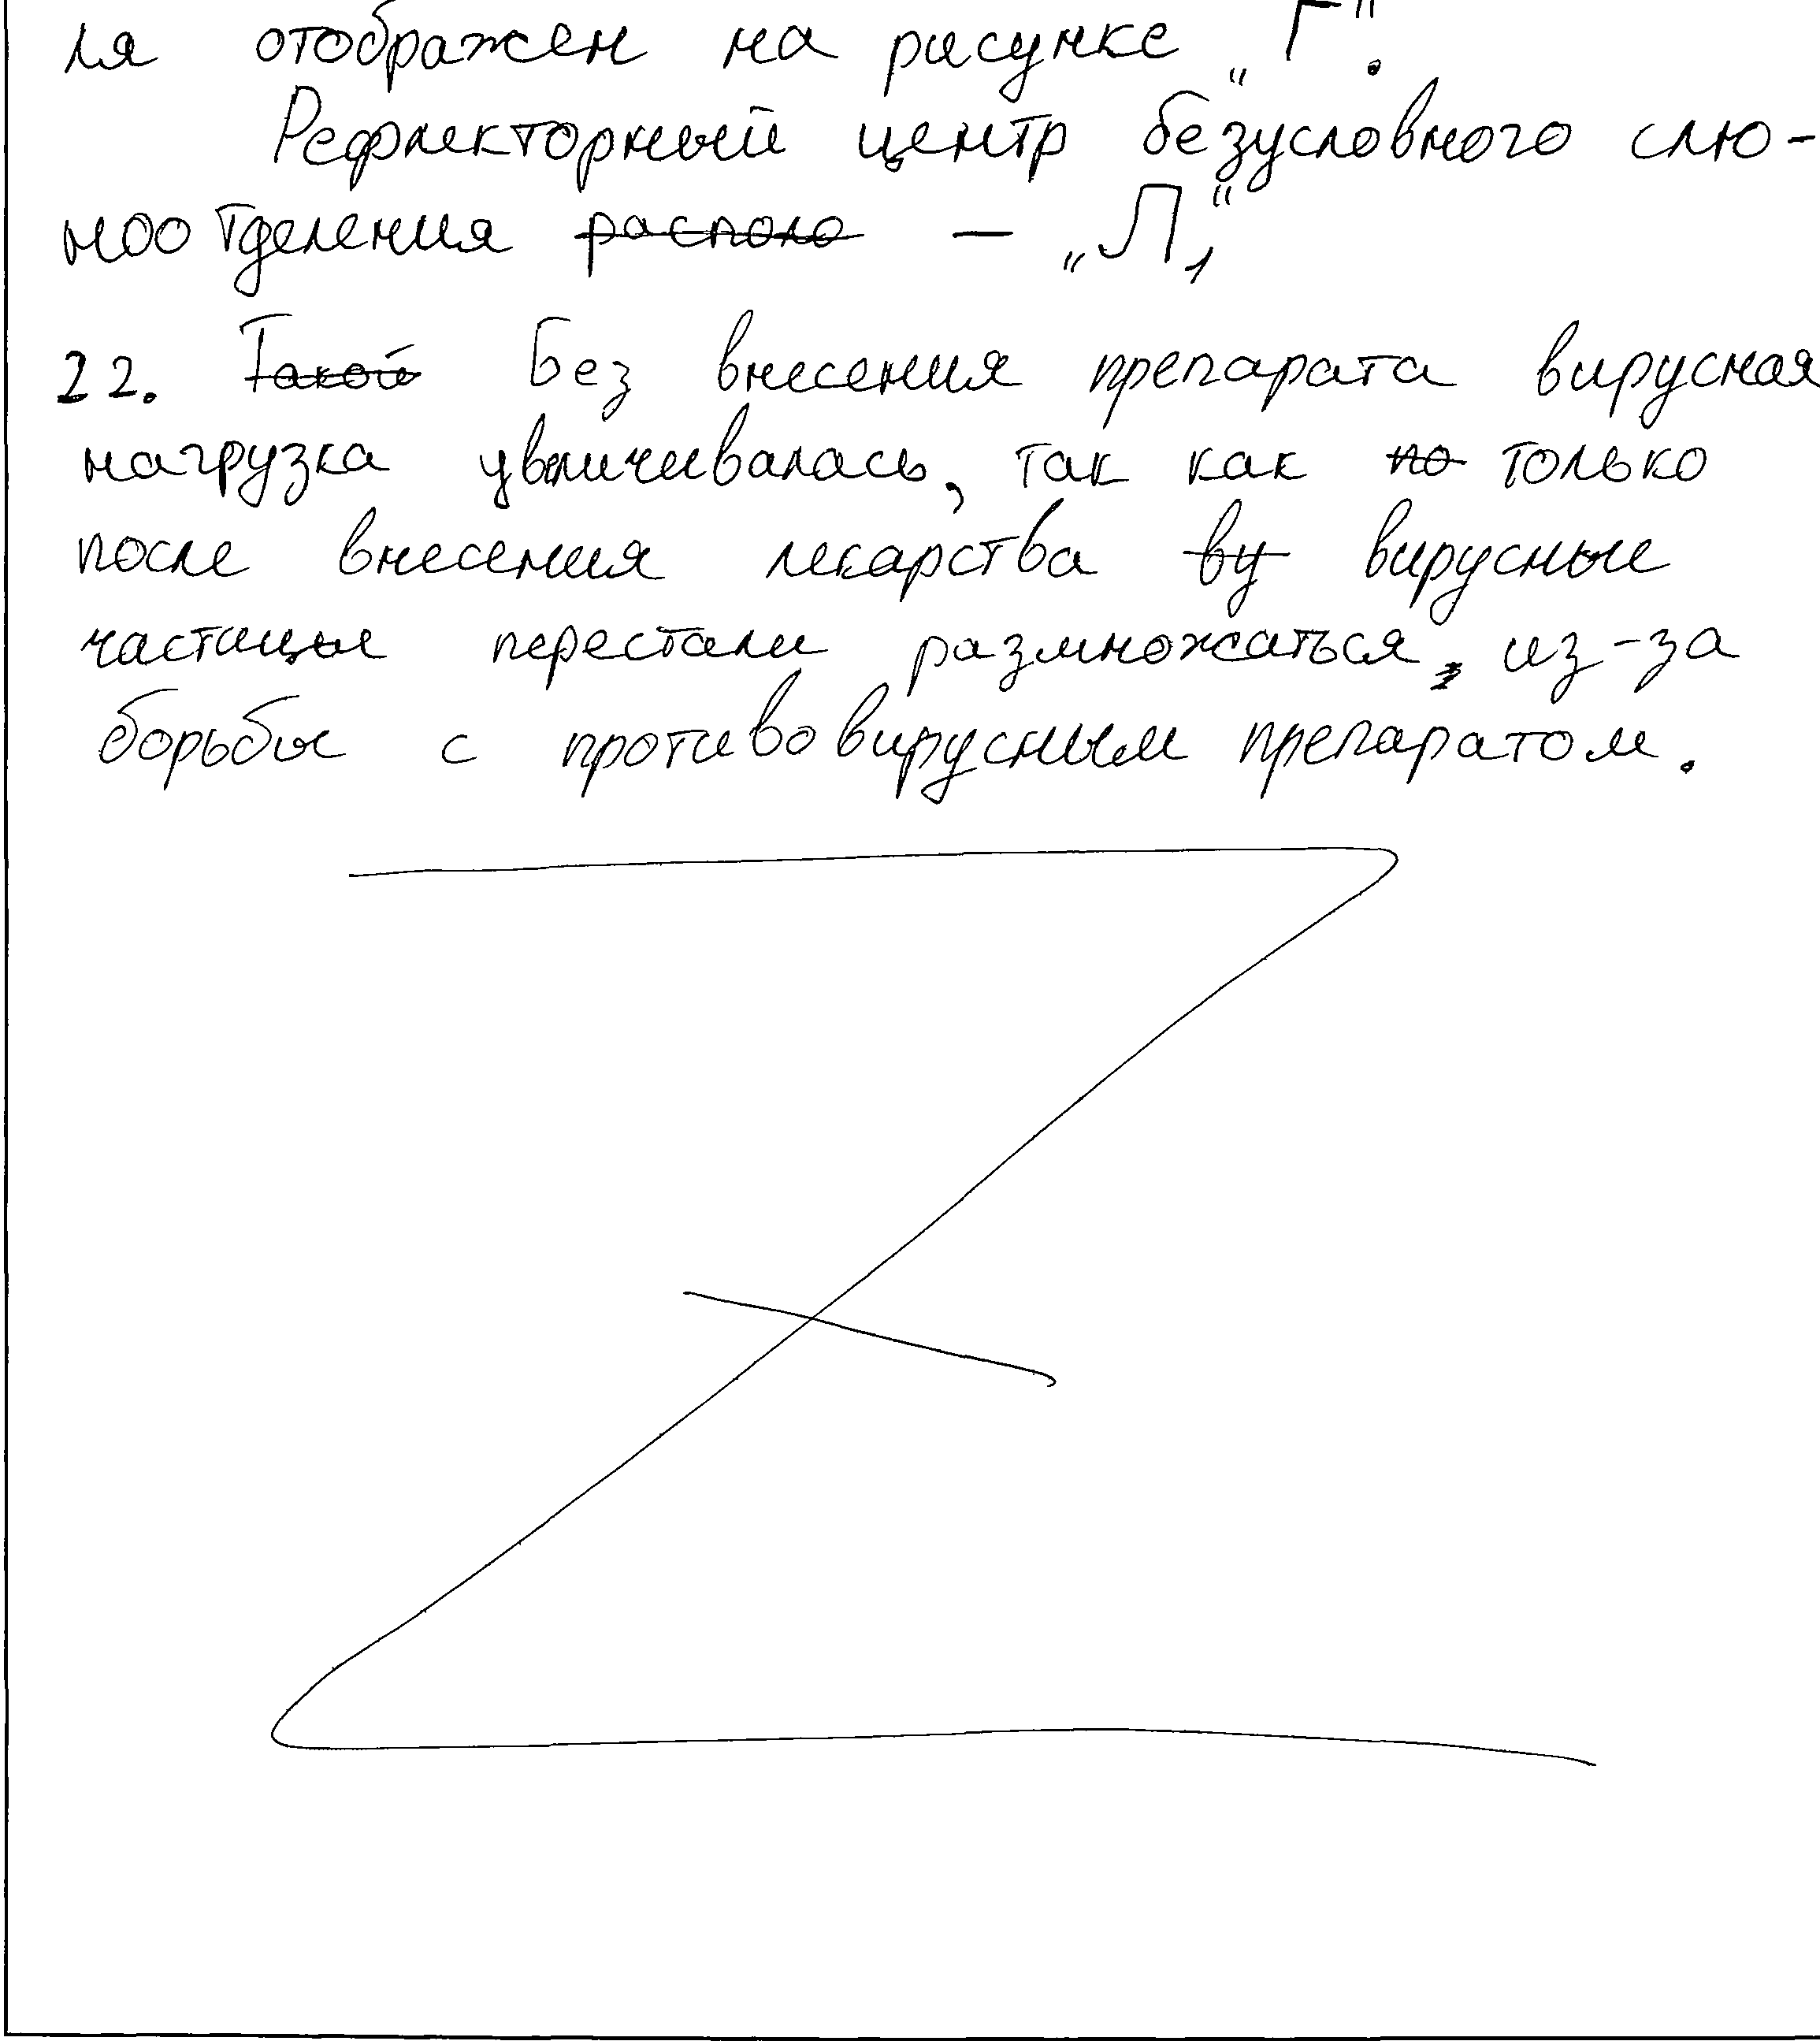 ля отображен на рисунке „Г“.
Рефлекторный центр безусловного слю-
ноотделения располо — „Л1“
22. Такой Без внесения препарата вирусная
нагрузка увеличивалась, так как по только
после внесения лекарства ву вирусные
частицы перестали размножаться, из-за
борьбы с противовирусным препаратом.